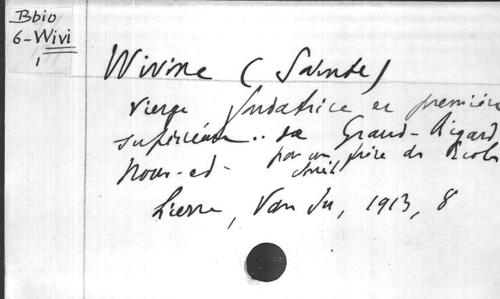 Bbio
6-Wivi
1
Wivine (Sainte)
vierge fondatrice et première
supérieure .. de Grand-Bigard
Nouv. ed - par un père de
Lierre, Van In, 1913, 8